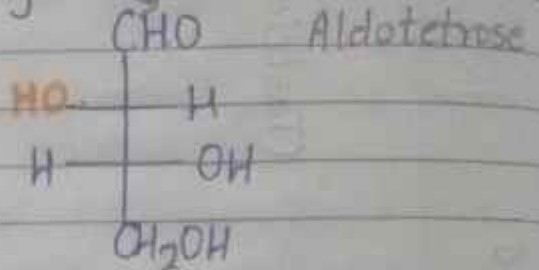 CHO Aldotetrose
HO H
H OH
CH2OH